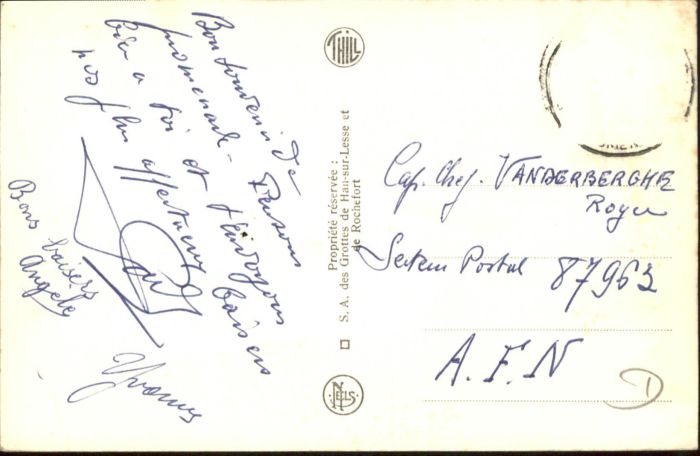 Bon souvenir de
promenade. Pensons
bien a toi et t'envoyons
nos plus affectueux baisers
Bons baisers
Angèle
Yvonne
THILL
Propriété réservée :
S. A. des Grottes de Han-sur-Lesse et
de Rochefort
NELS
Cap. Chef. VANDERBERGHE
Roger
Secteur Postal 87963
A.F.N